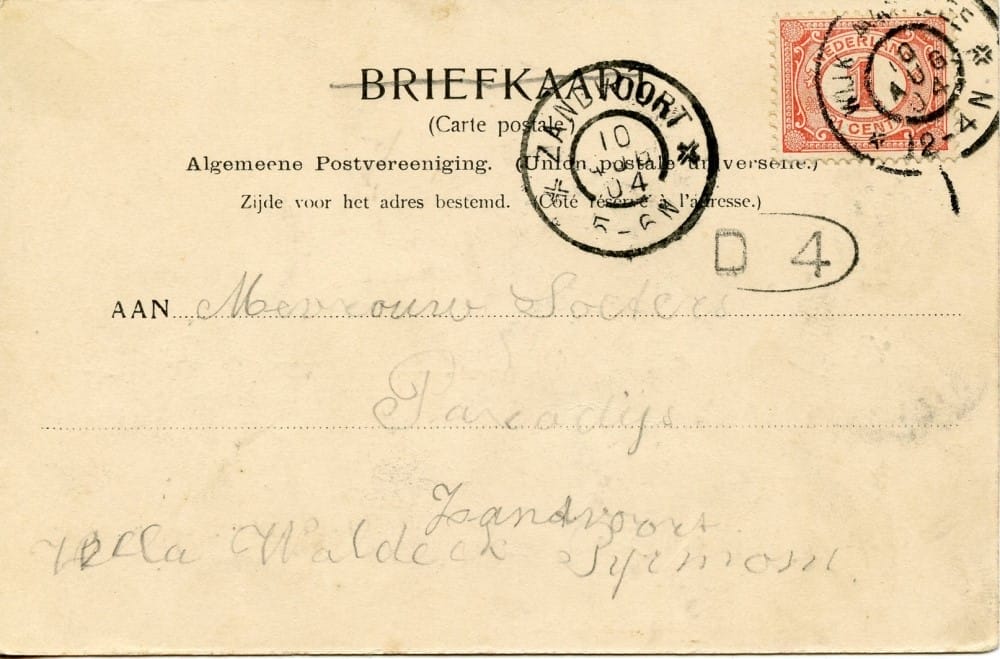 BRIEFKAART
(Carte postale)
Algemeene Postvereeniging. (Union postale universelle.)
Zijde voor het adres bestemd. (Côté réservé à l'adresse.)
NEDERLAND
1
1 CENT
WIJK AAN ZEE
AUG
04
12-4 N
ZANDVOORT
10
AUG
04
5-6N
D 4
AAN Mevrouw Solters
Paradijs
Zandvoort
Villa Waldeck Pyrmont.